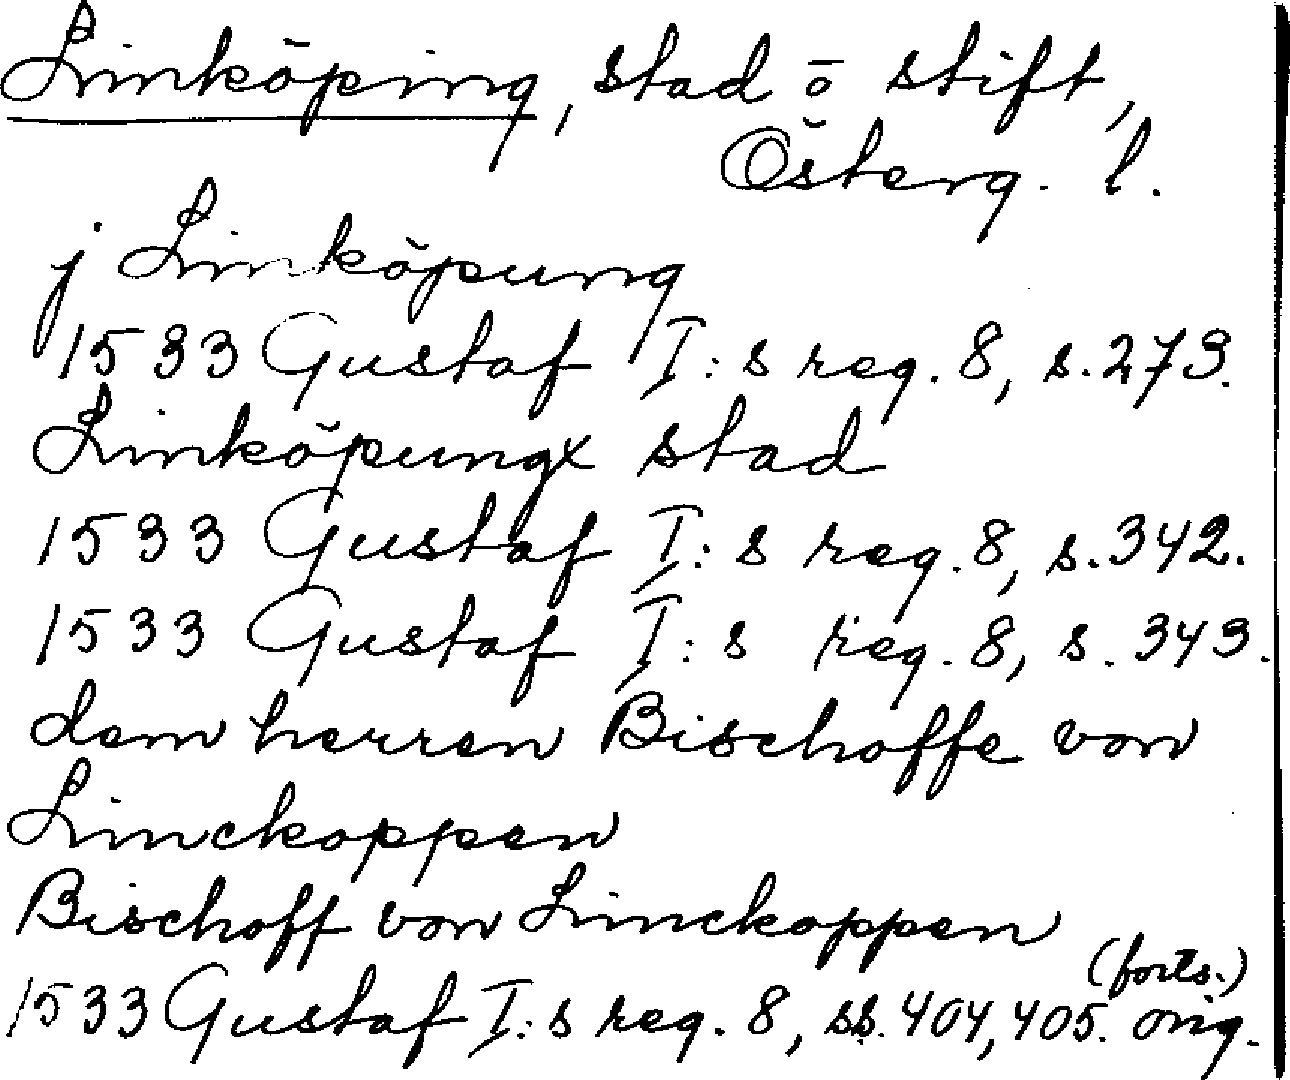 Linköping, stad ō stift,
Österg. l.
j Linköpung
1533 Gustaf I:s reg. 8, s. 273.
Linköpungx stad
1533 Gustaf I:s reg. 8, s. 342.
1533 Gustaf I:s reg. 8, s. 343.
dem herren Bischoffe von
Linckoppen
Bischoff von Linckoppen
(forts.)
1533 Gustaf I:s reg. 8, ss. 404, 405. orig.